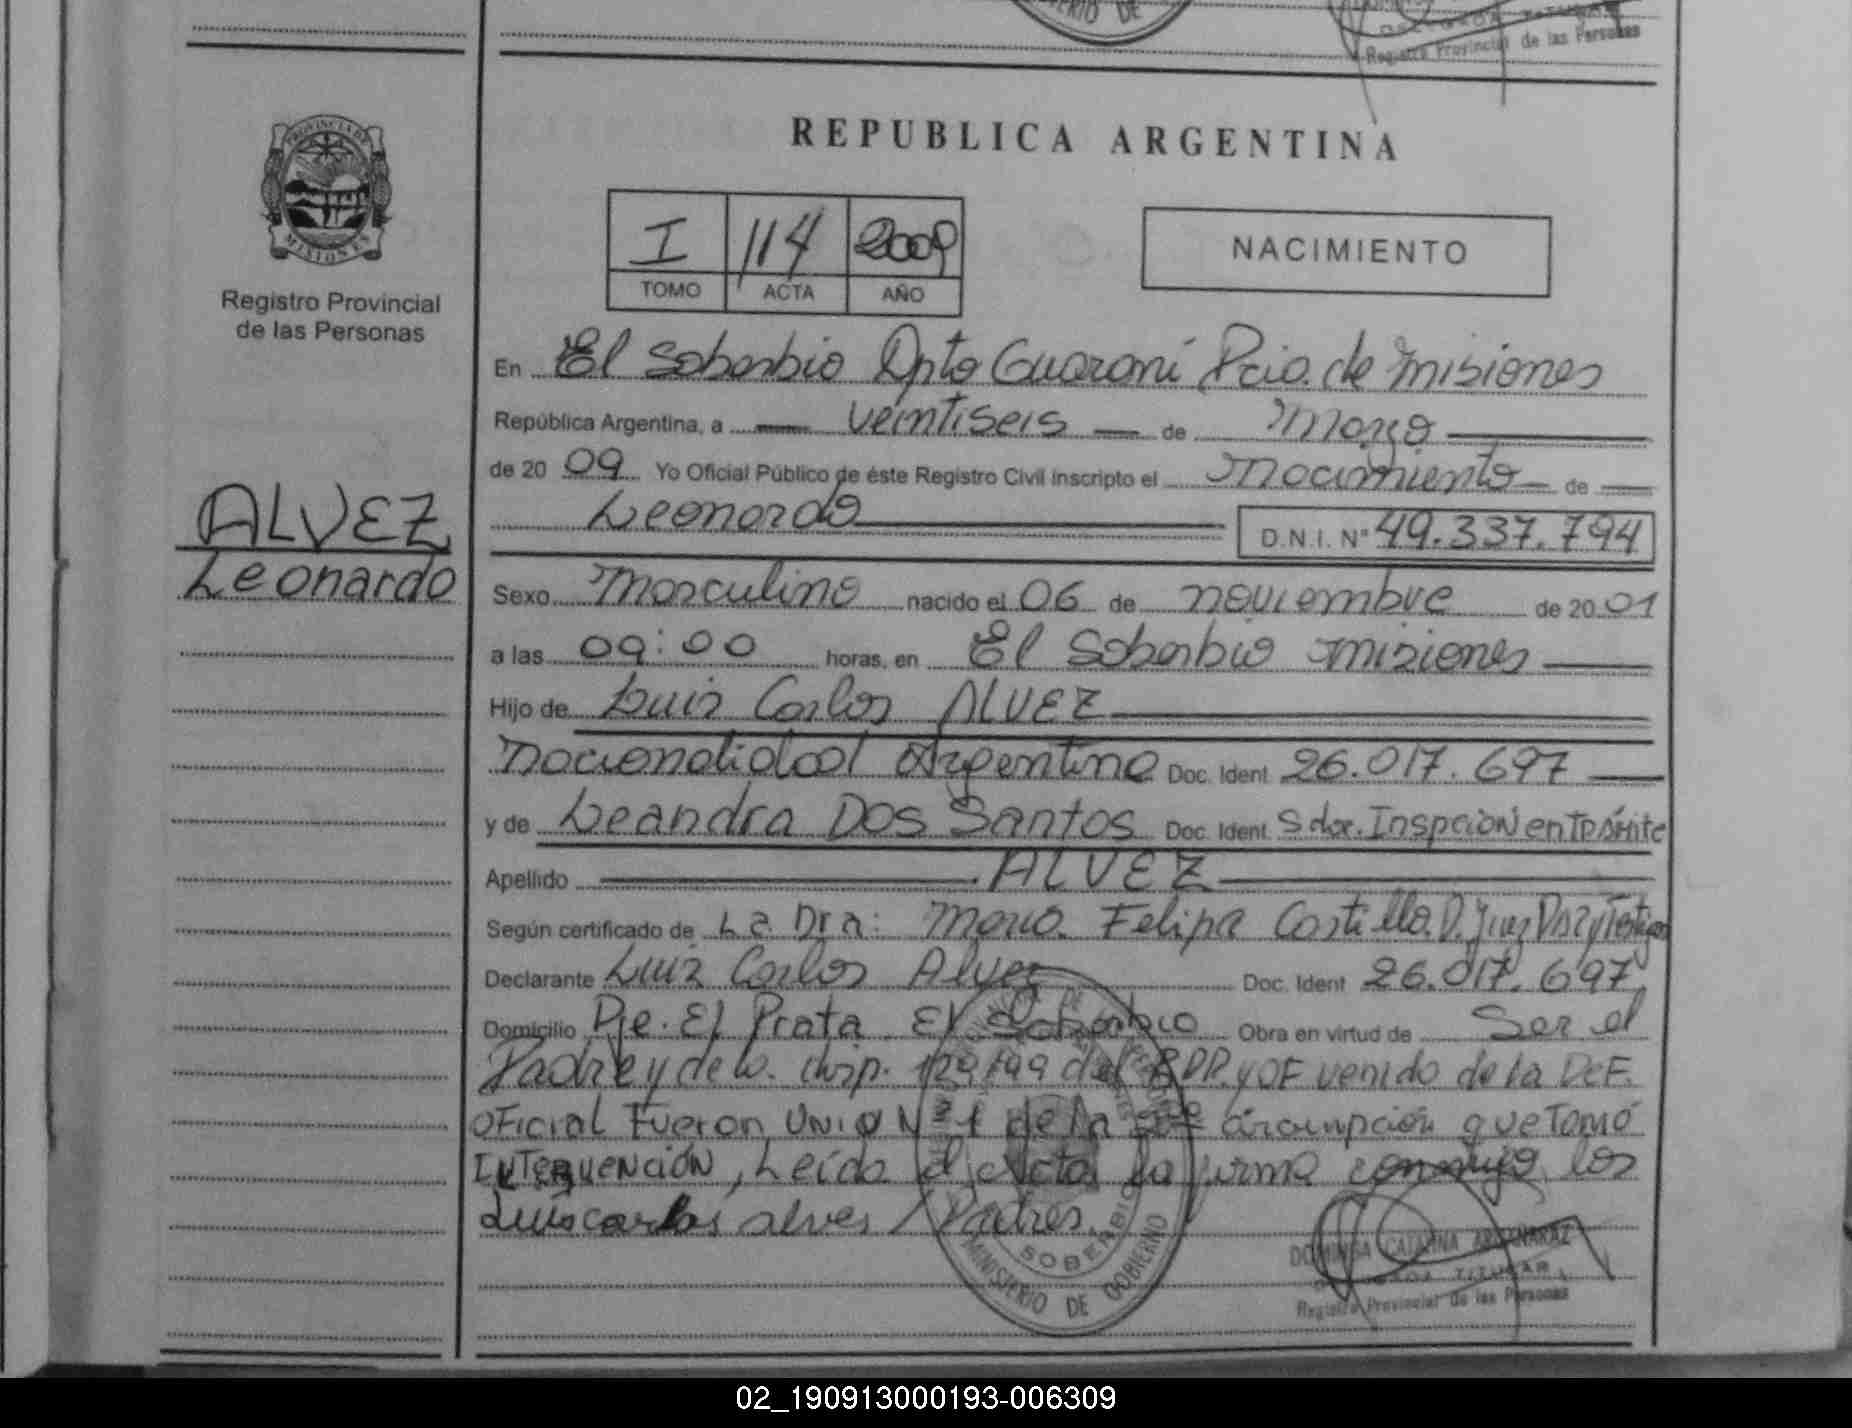 MINISTERIO DE
Registro Provincial de las Personas
PROVINCIA DE
MISIONES
Registro Provincial
de las Personas
REPUBLICA ARGENTINA
I 114 2009
TOMO ACTA AÑO
NACIMIENTO
En El Soberbio Dpto Guaraní Pcia. de Misiones
República Argentina, a veintiseis de Marzo
de 20 09 Yo Oficial Público de éste Registro Civil inscripto el Nacimiento de
Leonardo D.N.I. Nº 49.337.794
ALVEZ
Leonardo
Sexo Masculino nacido el 06 de noviembre de 20 01
a las 09:00 horas, en El Soberbio Misiones
Hijo de Luis Carlos ALVEZ
Nacionalidad Argentina Doc. Ident 26.017.697
y de Leandra DOS Santos Doc. Ident. S doc. Inspcion en Trámite
Apellido ALVEZ
Según certificado de La Dra: Maria Felipa Castillo. D. Juez Paz y Testigos
Declarante Luis Carlos Alvez Doc. Ident 26.017.697
Domicilio Pje. El Prata El Soberbio Obra en virtud de Ser el
Padre y de la disp. 129/99 del RPP. y OF venido de la DeF.
OFicial Fueron Unio N 1 de la circunpción que Tomó
INTERVENCIÓN, Leída el Acta la firma conmigo los
Luis carlos alves / Padres.
SOBERBIO
MINISTERIO DE GOBIERNO
DOMINGA CATALINA ARGAÑARAZ
TITULAR
Registro Provincial de las Personas
02_190913000193-006309